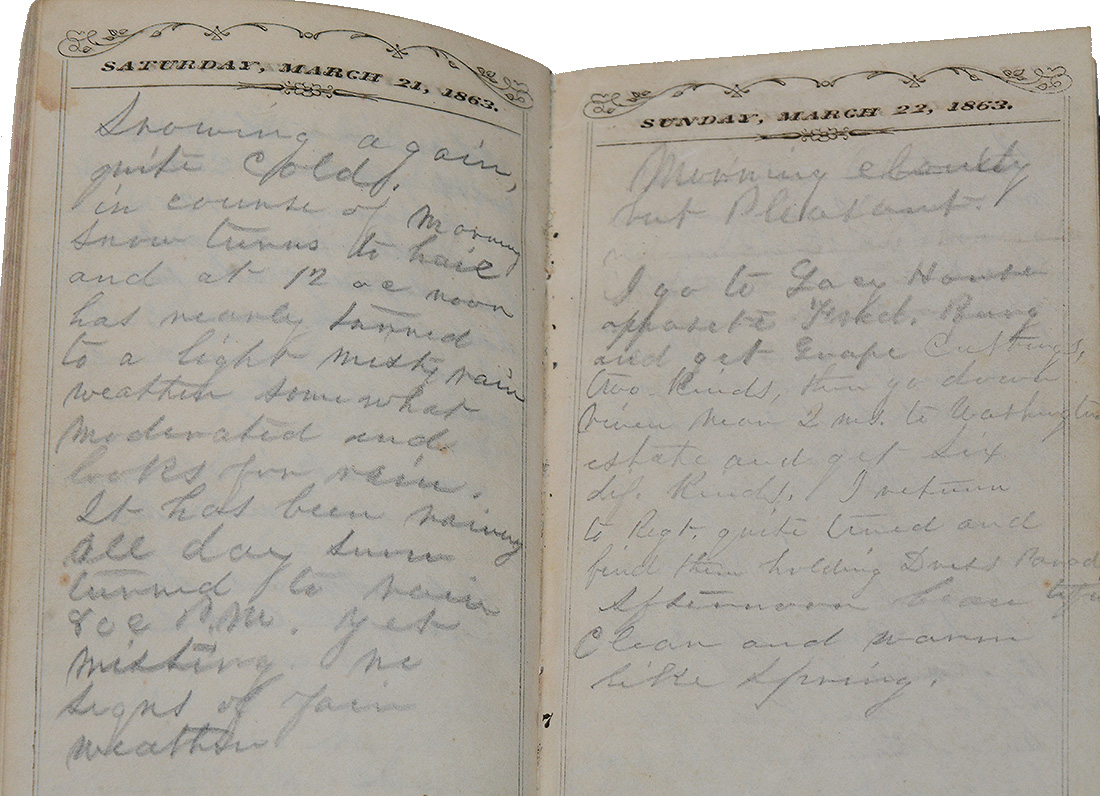 SATURDAY, MARCH 21, 1863.
Snowing again,
quite Cold.
in course of Morning
snow turns to hail
and at 12 oc noon
has nearly turned
to a light misty rain
weather somewhat
moderated and
looks for rain.
It has been raining
all day since
turned to rain
8 oc P.M. yet
misting. no
signs of fair
weather
SUNDAY, MARCH 22, 1863.
Morning cloudy
but Pleasant.
I go to Lacy House
opposite Freked. Burg
and get Grape Cuttings,
two Kinds, then go down
river near 2 ms. to Washington
estate and get six
dif. Kinds. I return
to Regt. quite tired and
find them holding Dress Parad
Afternoon beautiful
Clear and warm
like Spring.
7